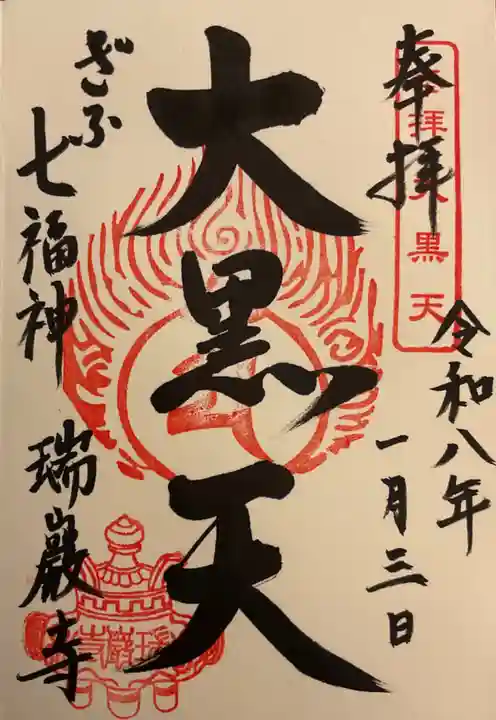 奉拝
拝大黒天
令和八年
一月三日
大黒天
ぎふ
七福神 瑞巖寺